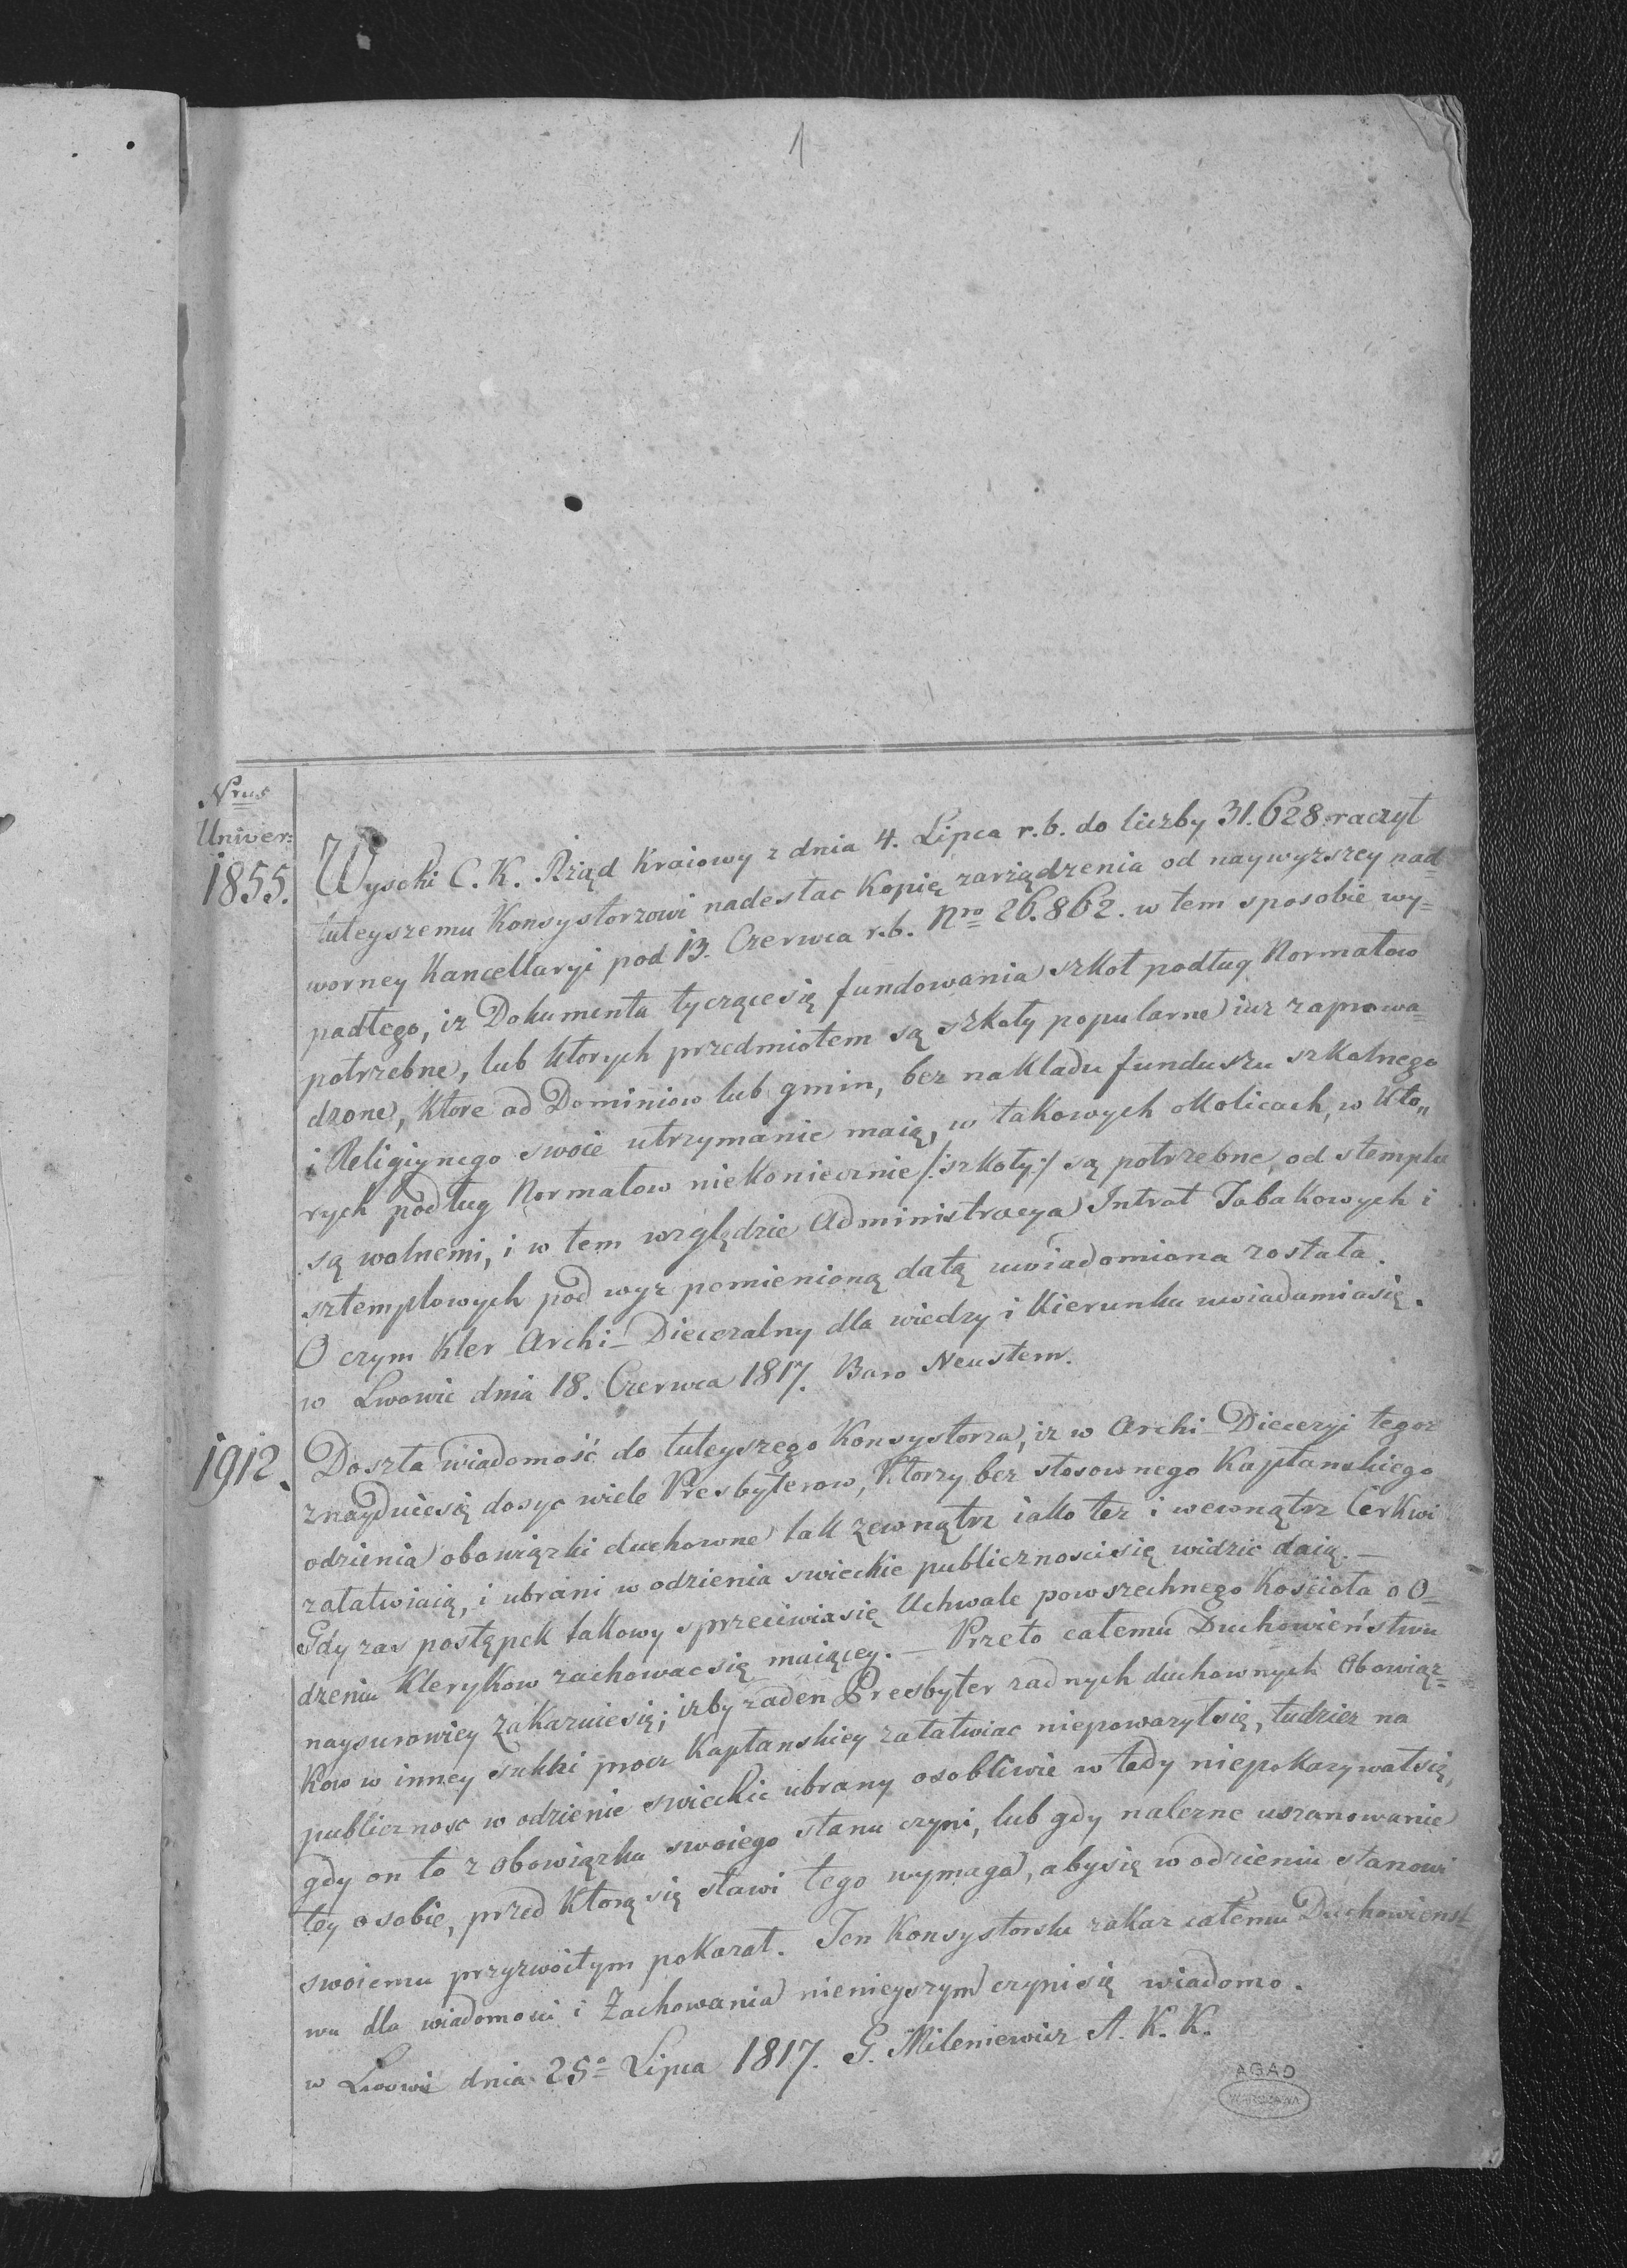 1
Nrus
Univer:
1855.
Wysoki C. K. Rząd Kraiowy z dnia 4. Lipca r. b. do liczby 31.628. raczył
tuteyszemu Konsystorzowi nadesłac Kopię zarządzenia od naywyzszey nad=
worney Kancellaryi pod 13. Czerwca r. b. Nro 26.862. w tem sposobie wy=
padłego, iz Dokumenta tyczącesię fundowania szkoł podług Normałow
potrzebne, lub ktorych przedmiotem są szkoły popularne iuz zaprowa=
dzone, ktore od Dominiow lub gmin, bez nakładu funduszu szkolnego
i Religiynego swoie utrzymanie maią, w takowych okolicach, w kto„
rych podług Normałow niekoniecznie /:szkoły:/ są potrzebne, od stemplu
są wolnemi, i w tem względzie Administracya Intrat Tabakowych i
sztemplowych pod wyz pomienioną datą uwiadomiona została.
O czym Kler Archi-Diecezalny dla wiedzy i Kierunku uwiadamiasię.
w Lwowie dnia 18. Czerwca 1817. Baro Neustern.
1912.
Doszła wiadomość do tuteyszego Konsystorza, iz w Archi-Diecezyi tegoz
znayduiesię dosyc wiele Presbyterow, Ktorzy bez stosownego Kapłanskiego
odzienia obowiązki duchowne tak zewnątrz iako tez i wewnątrz Cerkwi
załatwiaią, i ubrani w odzienia swieckie publicznoscisię widzic daią. —
Gdy zas postępek takowy sprzeciwiasię Uchwale powszechnego Kościoła o O=
dzeniu Klerykow zachowacsię maiącey. — Przeto całemu Duchowieństwu
naysurowiey zakazuiesię; izby zaden Presbyter zadnych duchownych Obowiąz=
kow w inney sukki procz Kapłanskiey załatwiac niepowazyłsię, tudziez na
publicznosc w odzienie swieckie ubrany osobliwie w tedy niepokazywałsię,
gdy on to z obowiązku swoiego stanu czyni, lub gdy nalezne uszanowanie
tey osobie, przed Ktorą się stawi tego wymaga, abysię w odzieniu stanowi
swoiemu przyzwoitym pokazał. Ten Konsystorski zakaz całemu Duchowienst
wu dla wiadomosci i Zachowania nienieyszym czynisię wiadomo.
w Lwowie dnia 25o Lipca 1817. G. Mileniewicz A. K. K.
AGAD
WARSZAWA